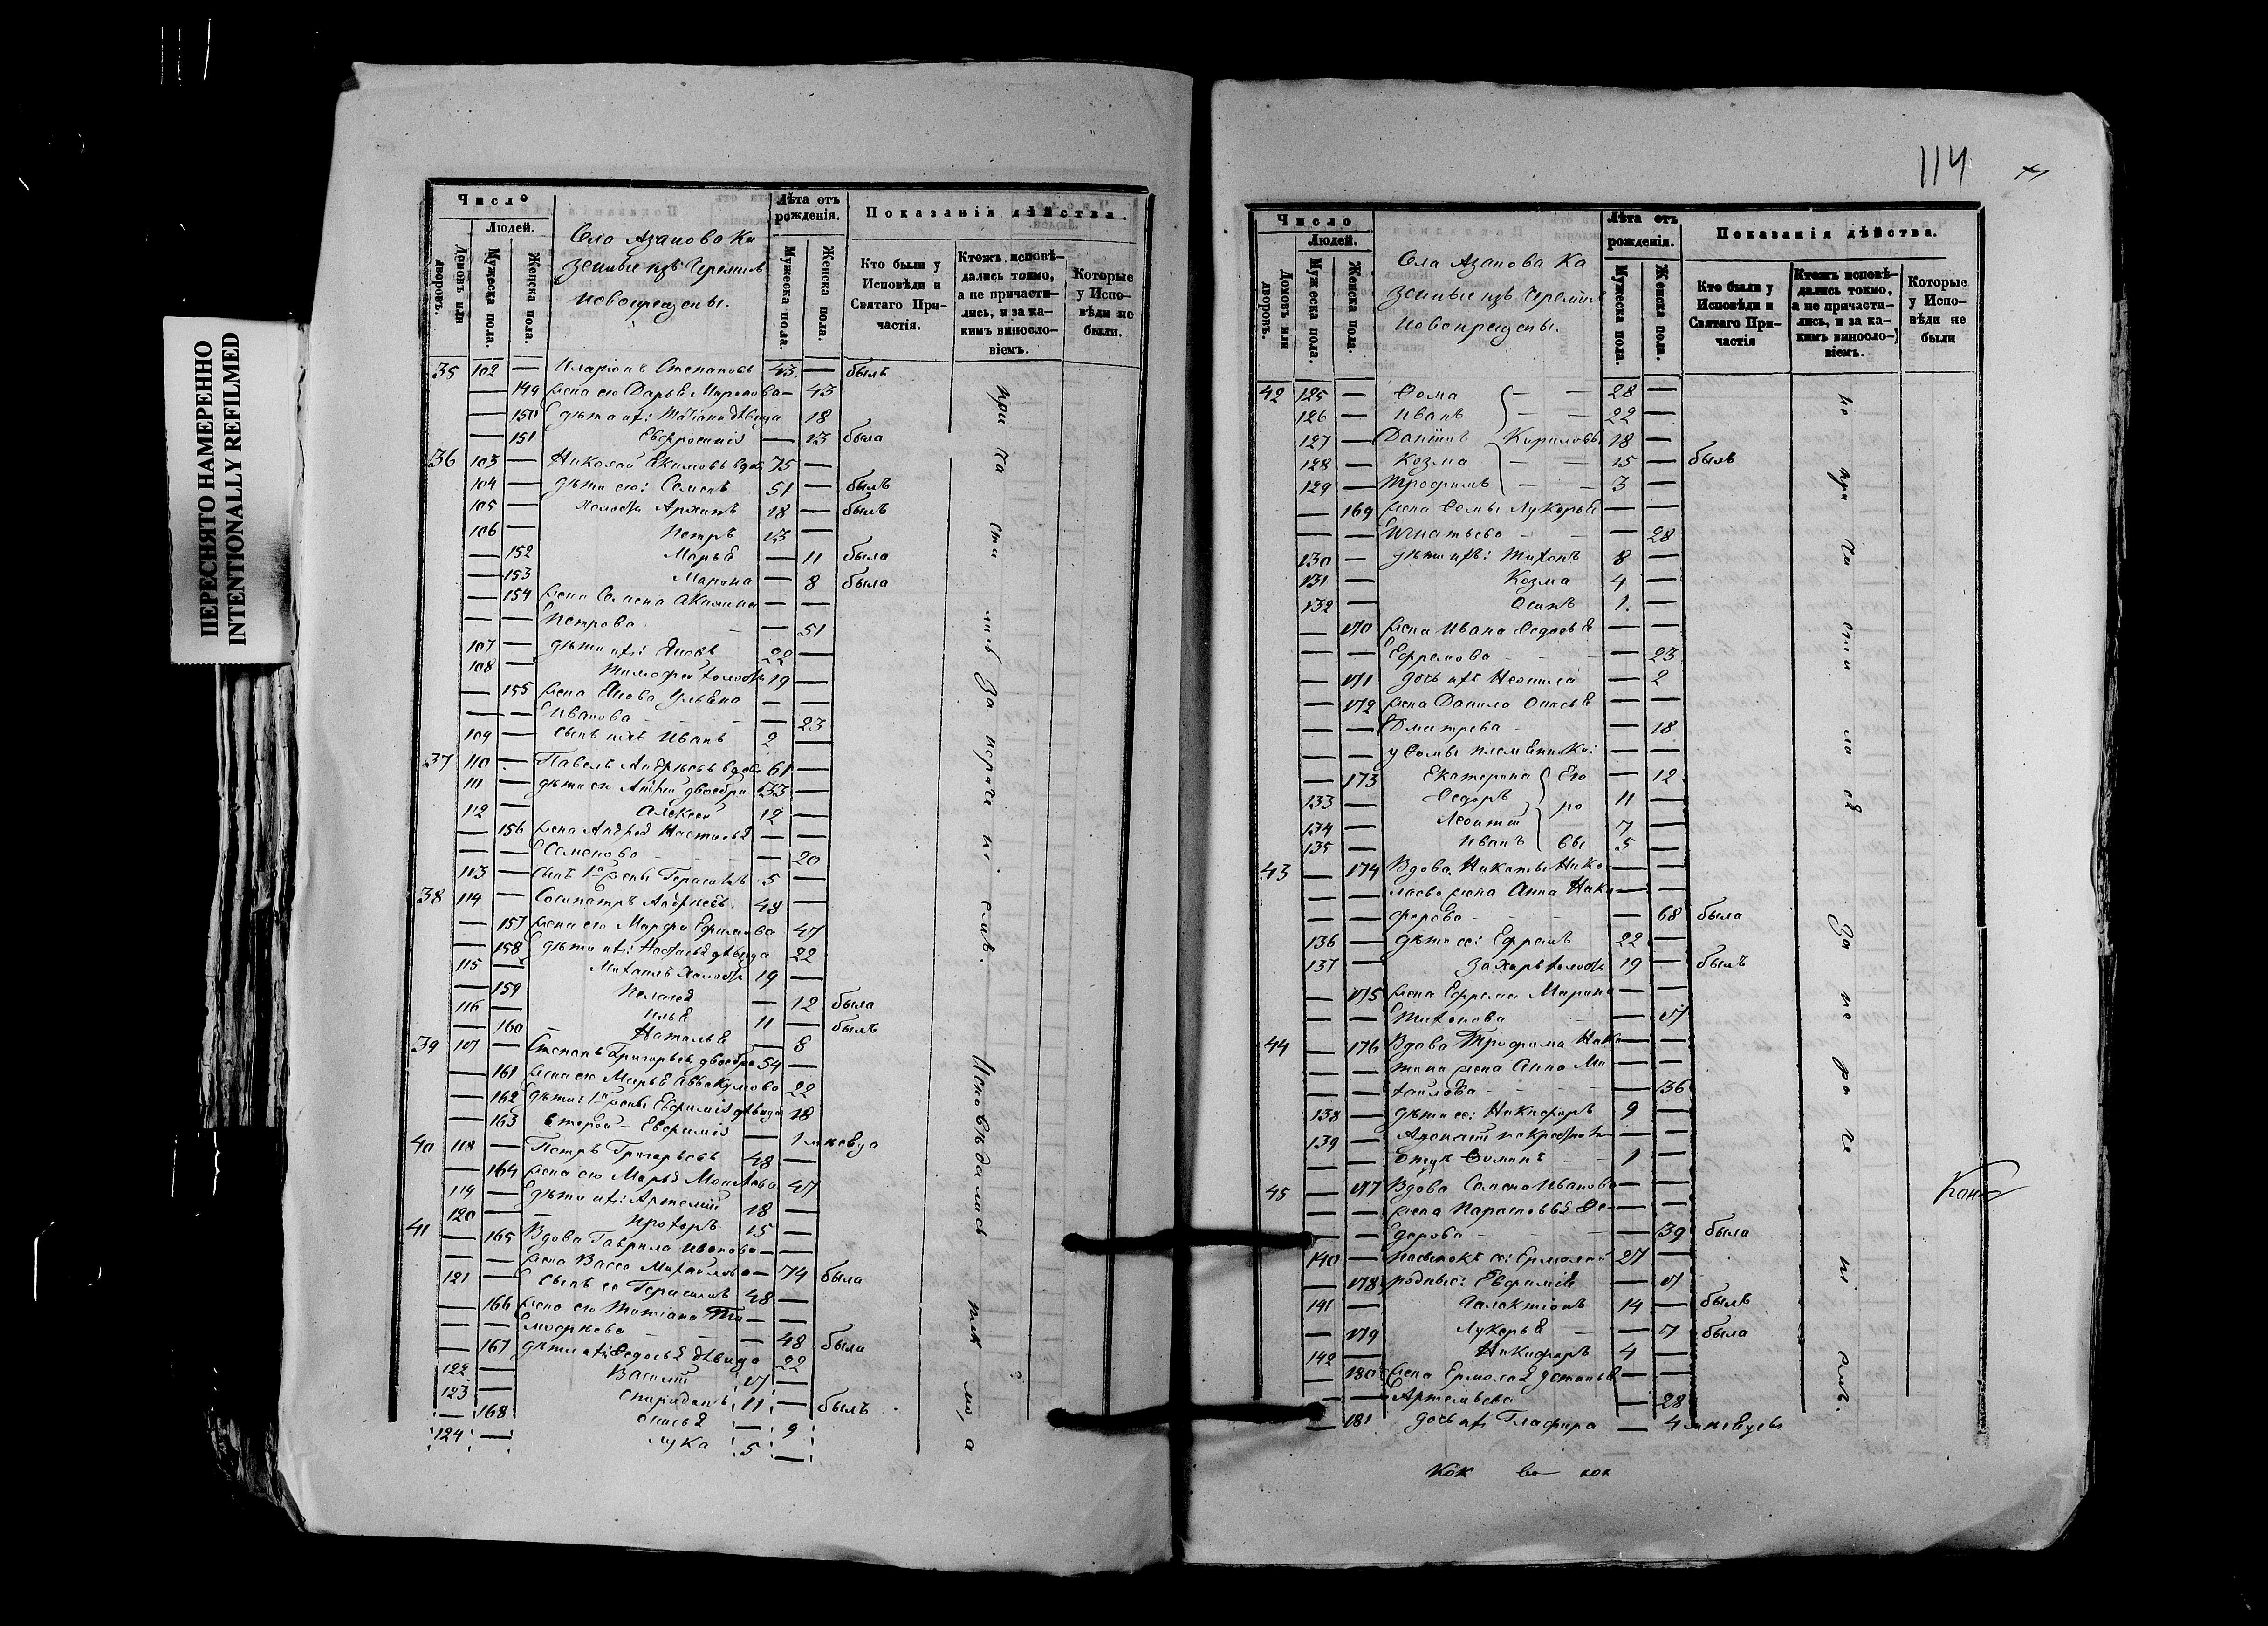 ПЕРЕСНЯТО НАМЕРЕННО
INTENTIONALLY REFILMED
Число
Людей.
Домовъ или дворовъ.
Мужеска пола.
Женска пола.
Села Азанова Ка
зенные изъ Черемисъ
Новокрещены.
Лѣта отъ рожденія.
Мужеска пола.
Женска пола.
Показанія дѣйства.
Кто были у Исповѣди и Святаго Причастія.
Ктожъ исповѣдались токмо, а не причастились, и за какимъ винословіемъ.
Которые у Исповѣди не были.
35 102 — Иларіонъ Степановъ 43 — былъ
— 149 жена его Дарья Миронова — 43
— 150 дѣти ихъ: Татіана дѣвица 18
— 151 Евфросинія — 13 была
36 103 — Николай Екимовъ вдовъ 75 —
104 — дѣти его: Семенъ 51 — былъ
105 — холостъ Архипъ 18 — былъ
106 — Петръ 13 —
— 152 Марья — 11 была
— 153 Марина — 8 была
— 154 жена Семена Акилина — —
— — Петрова — 51
107 — дѣти ихъ: Яковъ 22 —
108 — Тимофей холостъ 19 —
— 155 жена Якова Ульяна — —
— — Иванова — 23
109 — сынъ ихъ Иванъ 2 —
37 110 — Павелъ Андреевъ вдовъ 61 —
111 — дѣти его Андрей двоебра 33 —
112 — Алексей 12 —
— 156 жена Андрея Настасья — —
— — Семенова — 20
113 — сынъ 1й жены Герасимъ 5 —
38 114 — Сосипатръ Андреевъ 48 —
— 157 жена его Марфа Ефимова 47
— 158 дѣти ихъ: Настасья дѣвица 22
115 — Михаилъ холостъ 19 —
— 159 Пелагея — 12 была
116 — Илья 11 — былъ
— 160 Наталья — 8
39 117 — Степанъ Григорьевъ двоебра 54 —
— 161 жена его Марья Аввакумова 22
— 162 дѣти: 1й жены Евфимія дѣвица 18
— 163 второй — Евфимія — 1 младенца
40 118 — Петръ Григорьевъ 48 —
— 164 жена его Марья Моисѣева 47
119 — дѣти ихъ: Артемій 18 —
120 — Прохоръ 15 —
41 — 165 Вдова Гаврила Иванова — —
— — жена Васса Михайлова — 74 была
121 — сынъ ее Герасимъ 48 —
— 166 жена его Татіана Ти — —
— — мофеева — 48 была
— 167 дѣти ихъ: Федосья дѣвица 22
122 — Василій 17 —
123 — Спиридонъ 11 — былъ
— 168 Анисья — 9
124 — Лука 5 —
Исповѣдались токмо, а
не причастились за нерачі емъ.
114
Число
Людей.
Домовъ или дворовъ.
Мужеска пола.
Женска пола.
Села Азанова Ка
зенные изъ Черемисъ
Новокрещены.
Лѣта отъ рожденія.
Мужеска пола.
Женска пола.
Показанія дѣйства.
Кто были у Исповѣди и Святаго Причастія
Ктожъ исповѣдались токмо, а не причастились, и за какимъ винословіемъ.
Которые у Исповѣди не были
42 125 — Фома — — 28 —
126 — Иванъ — — 22 —
127 — Данiилъ Кириловы 18 —
128 — Козма — — 15 — былъ
129 — Трофимъ — — 3 —
— 169 жена Фомы Лукерья — —
— — Игнатьева — 28
130 — дѣти ихъ: Тихонъ 8 —
131 — Козма 4 —
132 — Осипъ 1. —
— 170 жена Ивана Федосья — —
— — Ефремова — 23
— 171 дочь ихъ Неонила — 2
— 172 жена Данила Анисья — —
— — Дмитрева — 18
— — у Фомы племянники: — —
— 173 Екатерина Его — 12
133 — Федоръ ро 11 —
134 — Леонтій 7 —
135 — Иванъ вы 5 —
43 — 174 Вдова Никиты Нико — —
— — лаева жена Анна Ники — —
— — форова — 68 была
136 — дѣти ее: Ефремъ 22 —
137 — Захаръ холостъ 19 — былъ
— 175 жена Ефрема Марина — —
— — Тихонова — 17
44 — 176 Вдова Трофима Ники — —
— — тина жена Анна Ми — —
— — хайлова — 36
138 — дѣти ее: Никифоръ 9 —
139 — — —
— — 1 —
45 — 177 Вдова Семена Иванова — —
— — жена Парасковья Фе — —
— — дорова — 39 была
140 — пасынокъ ее: Ермолай 27 —
— 178 родные: Евфимія — 17
141 — Галактіонъ 14 — былъ
— 179 Лукерья — 7 была
142 — Никифоръ 4 —
— 180 жена Ермолая Устинья — —
— — Артемьева — 28
— 181 дочь ихъ Глафира — 4 младенцы
не причастился за нераченіемъ.